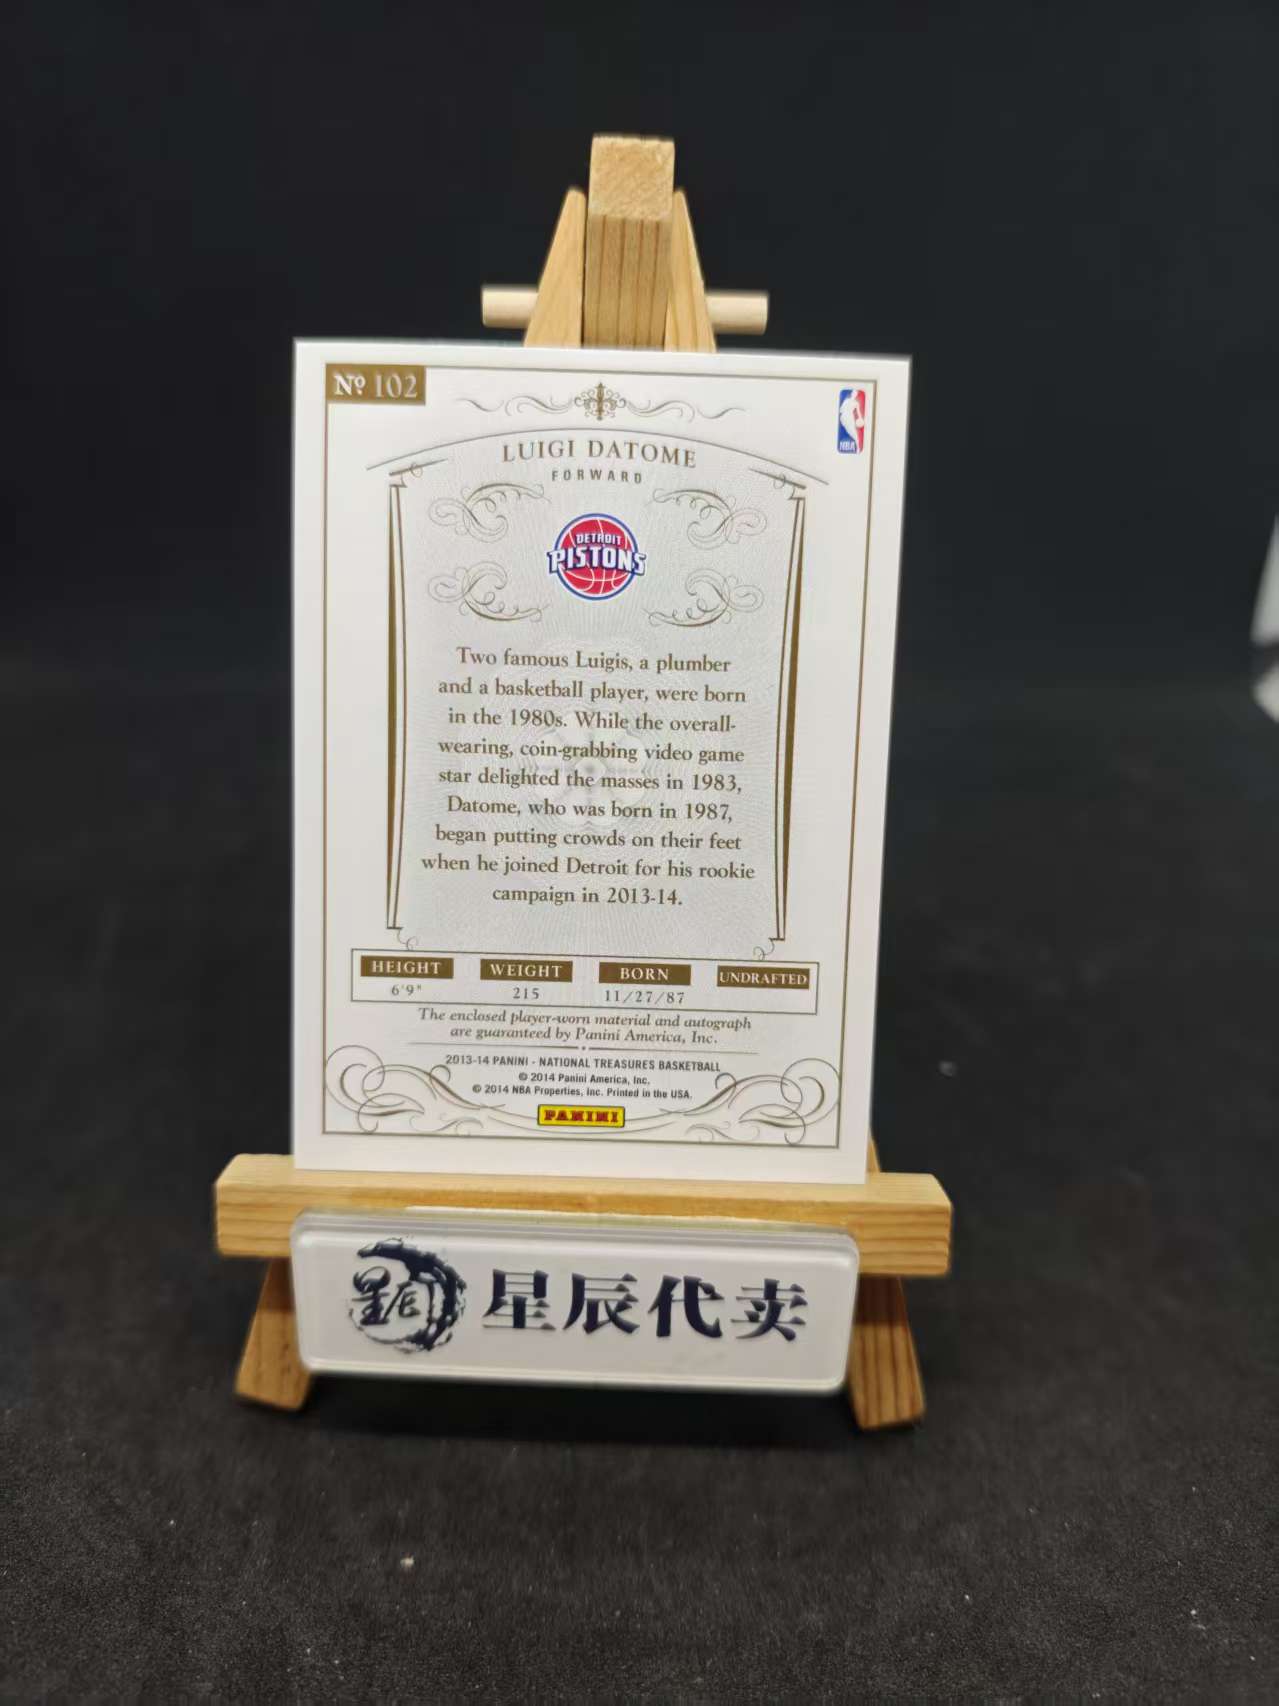 Nº 102
NBA
LUIGI DATOME
FORWARD
DETROIT
PISTONS
Two famous Luigis, a plumber
and a basketball player, were born
in the 1980s. While the overall-
wearing, coin-grabbing video game
star delighted the masses in 1983,
Datome, who was born in 1987,
began putting crowds on their feet
when he joined Detroit for his rookie
campaign in 2013-14.
HEIGHT WEIGHT BORN UNDRAFTED
6'9" 215 11/27/87
The enclosed player-worn material and autograph
are guaranteed by Panini America, Inc.
2013-14 PANINI - NATIONAL TREASURES BASKETBALL
© 2014 Panini America, Inc.
© 2014 NBA Properties, Inc. Printed in the USA.
PANINI
星辰 星辰代卖